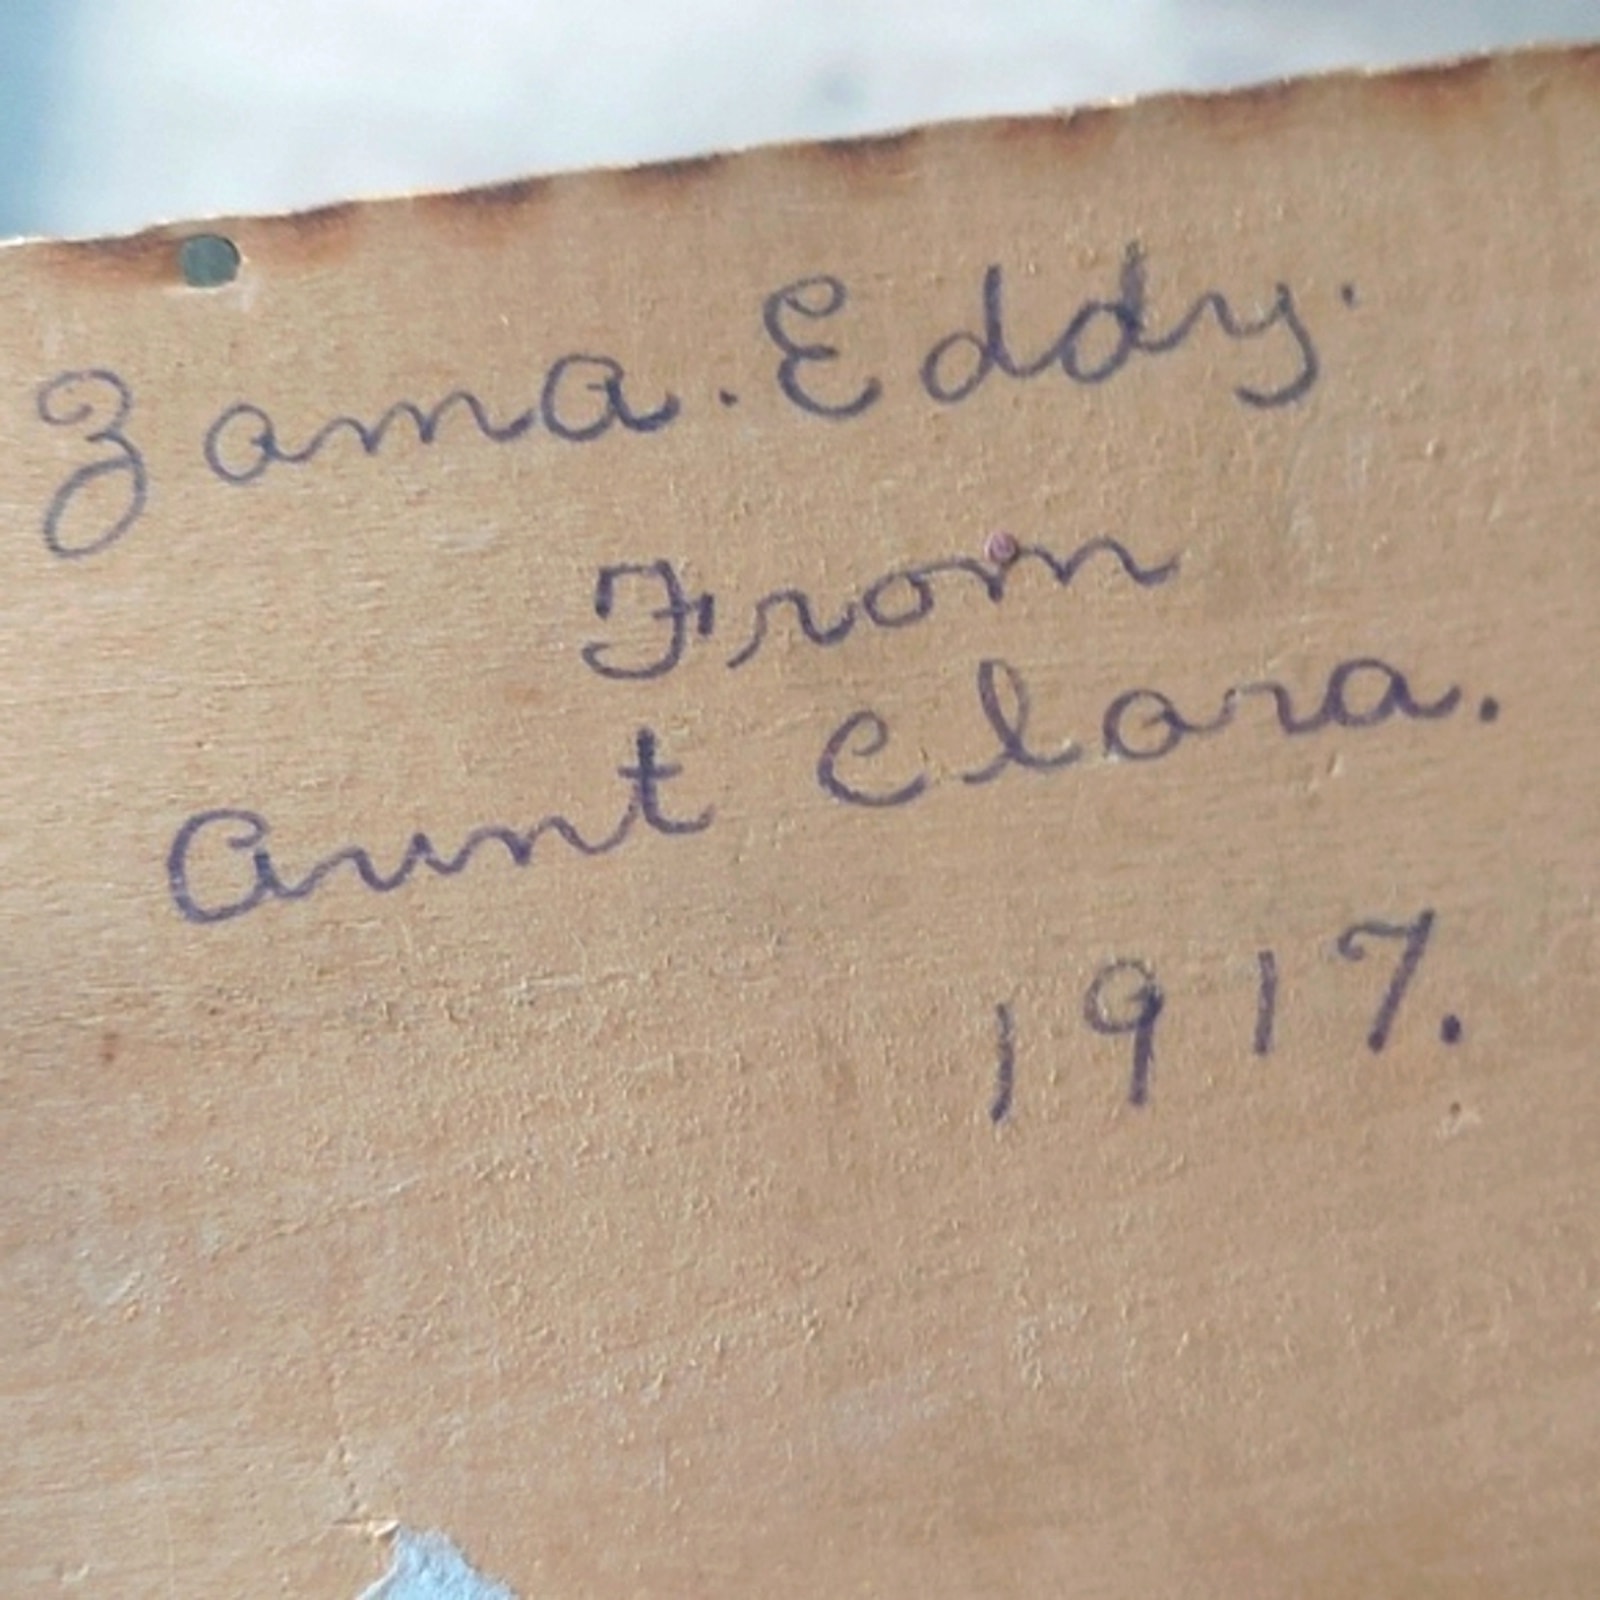 Zama. Eddy.
From
Aunt Clara.
1917.